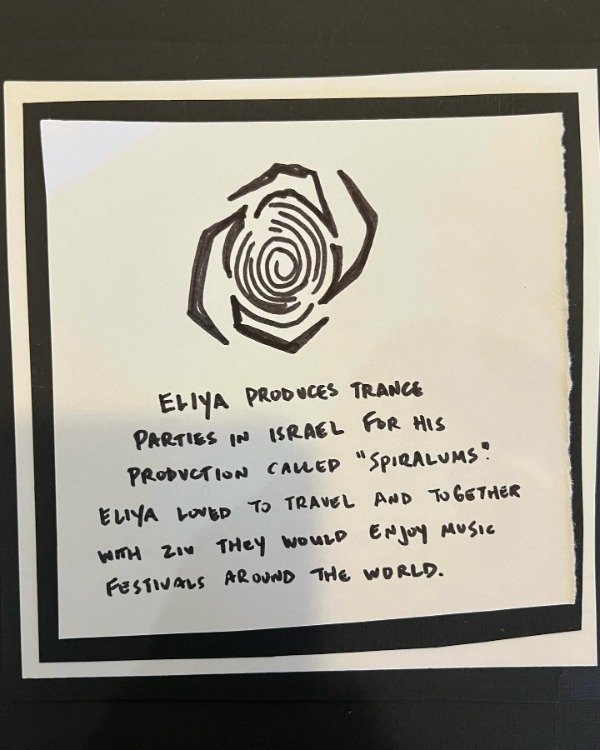 ELIYA PRODUCES TRANCE
PARTIES IN ISRAEL FOR HIS
PRODUCTION CALLED "SPIRALUMS".
ELIYA LOVED TO TRAVEL AND TOGETHER
WITH ZIV THEY WOULD ENJOY MUSIC
FESTIVALS AROUND THE WORLD.